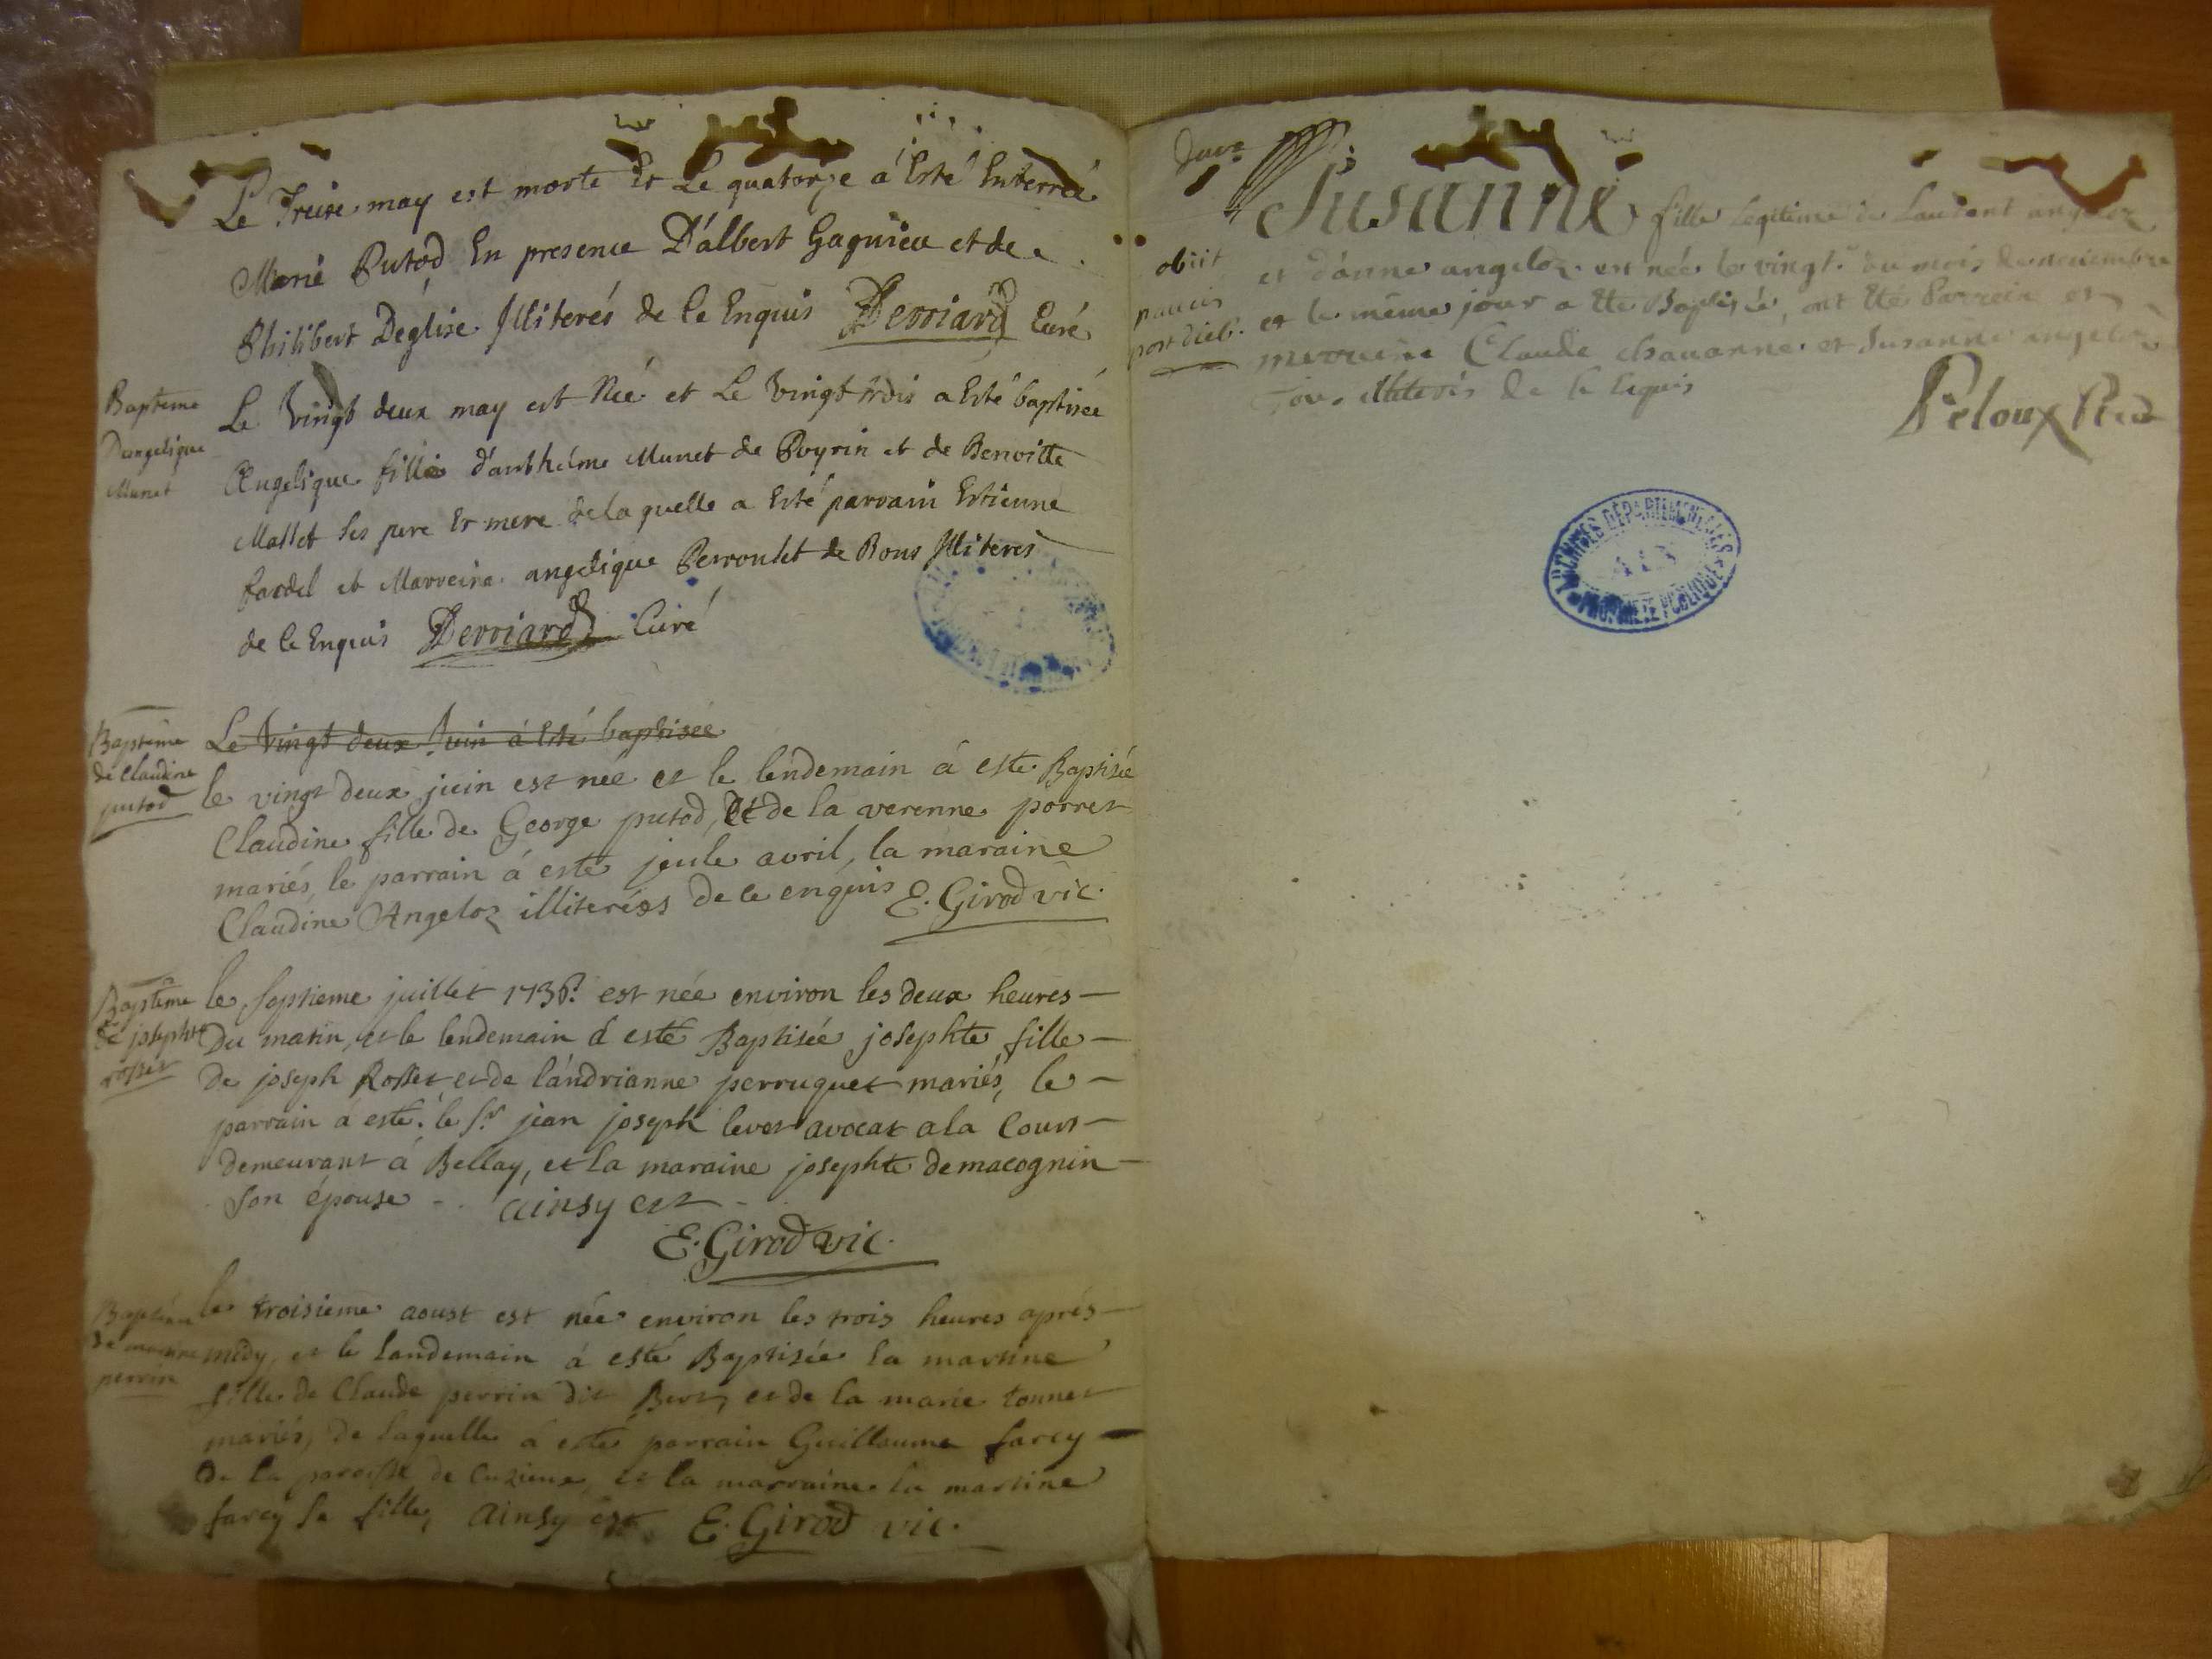 Le Treise may est morte Et Le quatorze á Esté Enterrée
Marie Putod En presence D'albert Gagnieu et de
Philibert Déglise Illiterés de ce Enquis Derriard Curé
Bapteme
D'angelique
Munet
Le Vingt deux may est Née et Le Vingt trois a Esté baptisée
Angelique fille d'anthelme Munet de Peyrin et de Benoitte
Mallet ses pere Et mere de laquelle a Esté parrain Estienne
fardel et Marreine angelique Perroulet de Rous Illiteres
de ce Enquis Derriard Curé
Bapteme
de claudine
putod
Le Vingt deux Juin á Esté baptisée
le vingt deux juin est née et le lendemain á esté Baptisée
Claudine fille de George putod, Et de la verenne porret
mariés, le parrain á esté jeule avril, la maraine
Claudine Angeloz illiterées de ce enquis E. Girod vic.
Bapteme
de josephte
rosset
le septieme juillet 1736. est née environ les deux heures
Du matin, et le lendemain á esté Baptisée josephte fille
De joseph Rosset et de l'andrianne perruquet mariés, le
parrain á esté le Sr. jean joseph levet avocat a la Cour
demeurant á Bellay, et la maraine josephte demacognin
son épouse ainsy est
E. Girod vic.
Bapteme
de martine
perrin
le troisieme aoust est née environ les trois heures aprés
midy, et le landemain á esté Baptisée la martine
fille de Claude perrin dit Bert, et de la marie tonnet
mariés, de laquelle á esté parrain Guillaume farcy
De la paroisse de Cuzieux, et la marraine la martine
farcy sa fille, Ainsy est E. Girod vic.
Susanne fille legitime de Laurent angeloz
obiit
paucis
post dieb.
et d'anne angeloz est née le vingt du mois de novembre
et le même jour a ete Baptisée, ont ete Parrein et
marreine Claude chavanne et susanne angeloz
Tous illiterés de ce Enquis
Peloux
ARCHIVES DEPARTEMENTALES
PROPRIETE PUBLIQUE